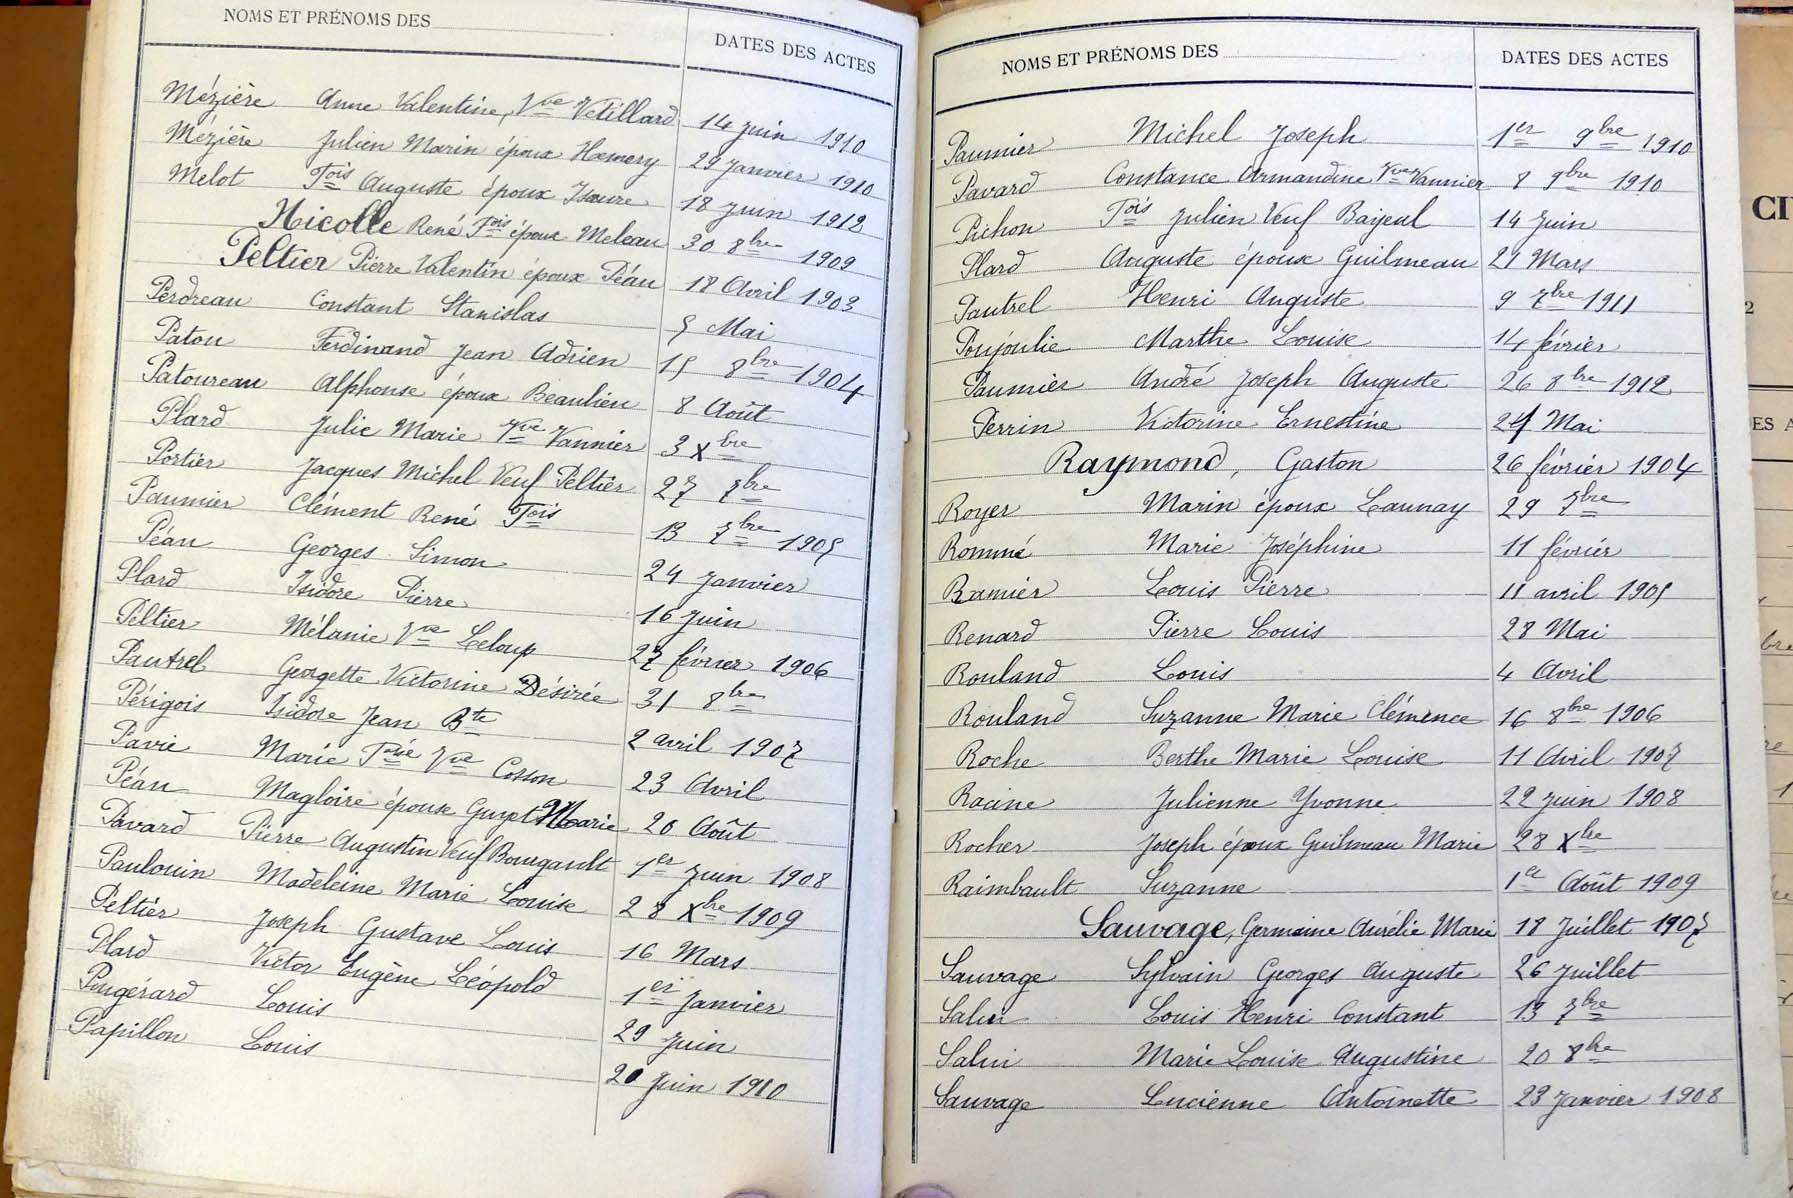 NOMS ET PRÉNOMS DES DATES DES ACTES
Mézière Anne Valentine, Vve Vetillard 14 Juin 1910
Mézière Julien Marin époux Hemery 29 Janvier 1910
Melot Fois Auguste époux Isaure 18 Juin 1912
Nicolle René Fois époux Meleau 30 8bre 1909
Peltier Pierre Valentin époux Péan 18 Avril 1903
Perdreau Constant Stanislas 5 Mai
Patou Ferdinand Jean Adrien 15 8bre 1904
Patoureau Alphonse époux Beaulieu 8 Août
Plard Julie Marie Vve Vannier 3 Xbre
Portier Jacques Michel Veuf Peltier 27 7bre
Paumier Clément René Fois 13 7bre 1905
Péan Georges Simon 24 Janvier
Plard Isidore Pierre 16 Juin
Peltier Mélanie Vve Leloup 27 février 1906
Pautrel Georgette Victorine Désirée 31 8bre
Périgois Isidore Jean Bte 2 avril 1907
Pavie Marie Vve Cosson 23 Avril
Péan Magloire épouse Guyet Marie 20 Août
Pavard Pierre Augustin Veuf Bourgault 1er Juin 1908
Paulouin Madeleine Marie Louise 28 Xbre 1909
Peltier Joseph Gustave Louis 16 Mars
Plard Victor Eugène Léopold 1er Janvier
Pougérard Louis 29 Juin
Papillon Louis 20 Juin 1910
NOMS ET PRÉNOMS DES DATES DES ACTES
Paumier Michel Joseph 1er 9bre 1910
Pavard Constance Armandine Vve Vannier 8 9bre 1910
Pichon Fois Julien Veuf Baijeul 14 Juin
Plard Auguste époux Guilmeau 21 Mars
Pautrel Henri Auguste 9 7bre 1911
Poujoulie Marthe Louise 14 février
Paumier André Joseph Auguste 26 8bre 1912
Perrin Victorine Ernestine 24 Mai
Raymond, Gaston 26 février 1904
Royer Marin époux Launay 29 7bre
Rommé Marie Joséphine 11 février
Ramier Louis Pierre 11 avril 1905
Renard Pierre Louis 28 Mai
Rouland Louis 4 Avril
Rouland Suzanne Marie Clémence 16 8bre 1906
Roche Berthe Marie Louise 11 Avril 1907
Racine Julienne Yvonne 22 Juin 1908
Rocher Joseph époux Guilmeau Marie 28 Xbre
Raimbault Suzanne 1er Août 1909
Sauvage, Germaine Aurélie Marie 18 Juillet 1907
Sauvage Sylvain Georges Auguste 26 Juillet
Salin Louis Henri Constant 13 7bre
Salin Marie Louise Augustine 20 8bre
Sauvage Lucienne Antoinette 23 Janvier 1908